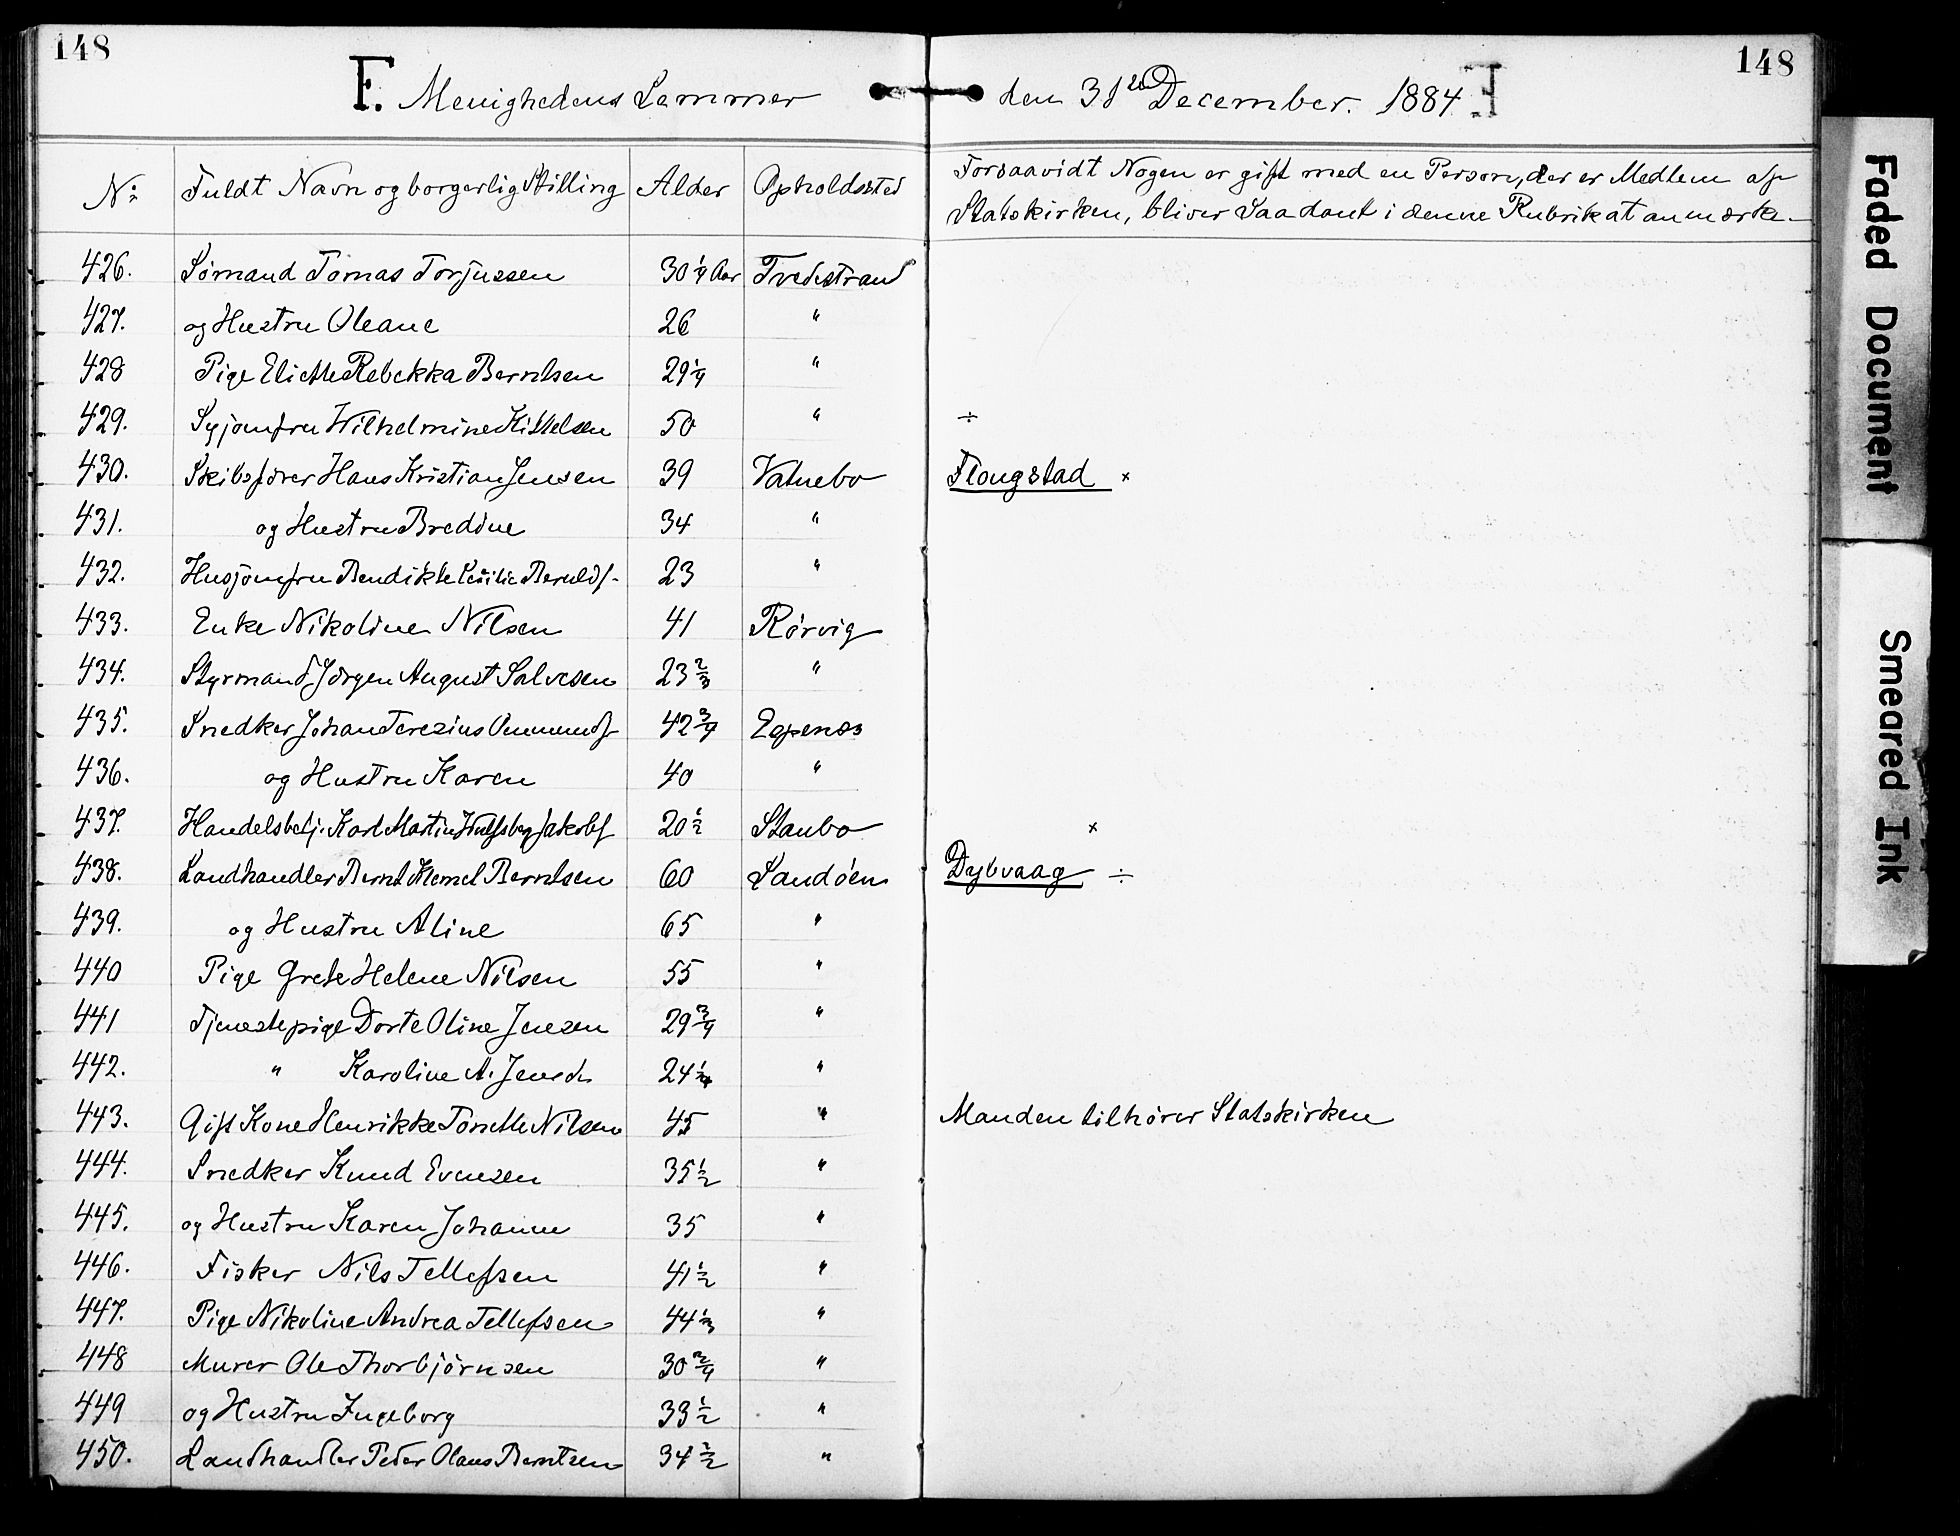 148 148
F. Menighedens Lemmer den 31te December. 1884 F
No Fuldt Navn og borgerlig Stilling Alder Opholdssted Forsaavidt Nogen er gift med en Person, der er Medlem af
Statskirken, bliver Saadant i denne Rubrik at anmærke.
426. Sømand Tomas Torjussen 30 1/4 Aar Tvedestrand
427. og Hustru Oleane 26 "
428 Pige Rebekka Berntsen 29 1/4 "
429. Syjomfru Wilhelmine Kittelsen 50 " ÷
430. Skibsfører Hans Kristian Jensen 39 Vatnebo Flougstad ×
431. og Hustru Bredine 34 "
432. Husjomfru Bendikte 23 "
433. Enke Nikoline Nilsen 41 Rørvig
434. Styrmand Jørgen August Salvesen 23 2/3 "
435. Snedker Johan Terezius 42 3/4 Egenæs
436. og Hustru Karen 40 "
437. Handelsbetj. Karl Martin 20 1/2 Staubo ×
438. Landhandler Bernt Klemet Berntsen 60 Sandøen Dybvaag ÷
439. og Hustru Aline 65 "
440 Pige Grete Helene Nilsen 55 "
441 Tjenestepige Dorte Oline Jensen 29 3/4 "
442. " Karoline A. Jensen 24 1/4 "
443. Gift Kone Henrikke Tonette Nilsen 45 " Manden tilhører Statskirken
444. Snedker Knud Evensen 35 1/2 "
445. og Hustru Karen Johanne 35 "
446. Fisker Nils Tellefsen 41 1/2 "
447. Pige Nikoline Andrea Tellefsen 44 1/3 "
448 Murer Ole Thorbjørnsen 30 3/4 "
449 og Hustru Ingeborg 33 1/2 "
450. Landhandler Peder Olaus Berntsen 34 1/2 "
Faded Document
Smeared Ink